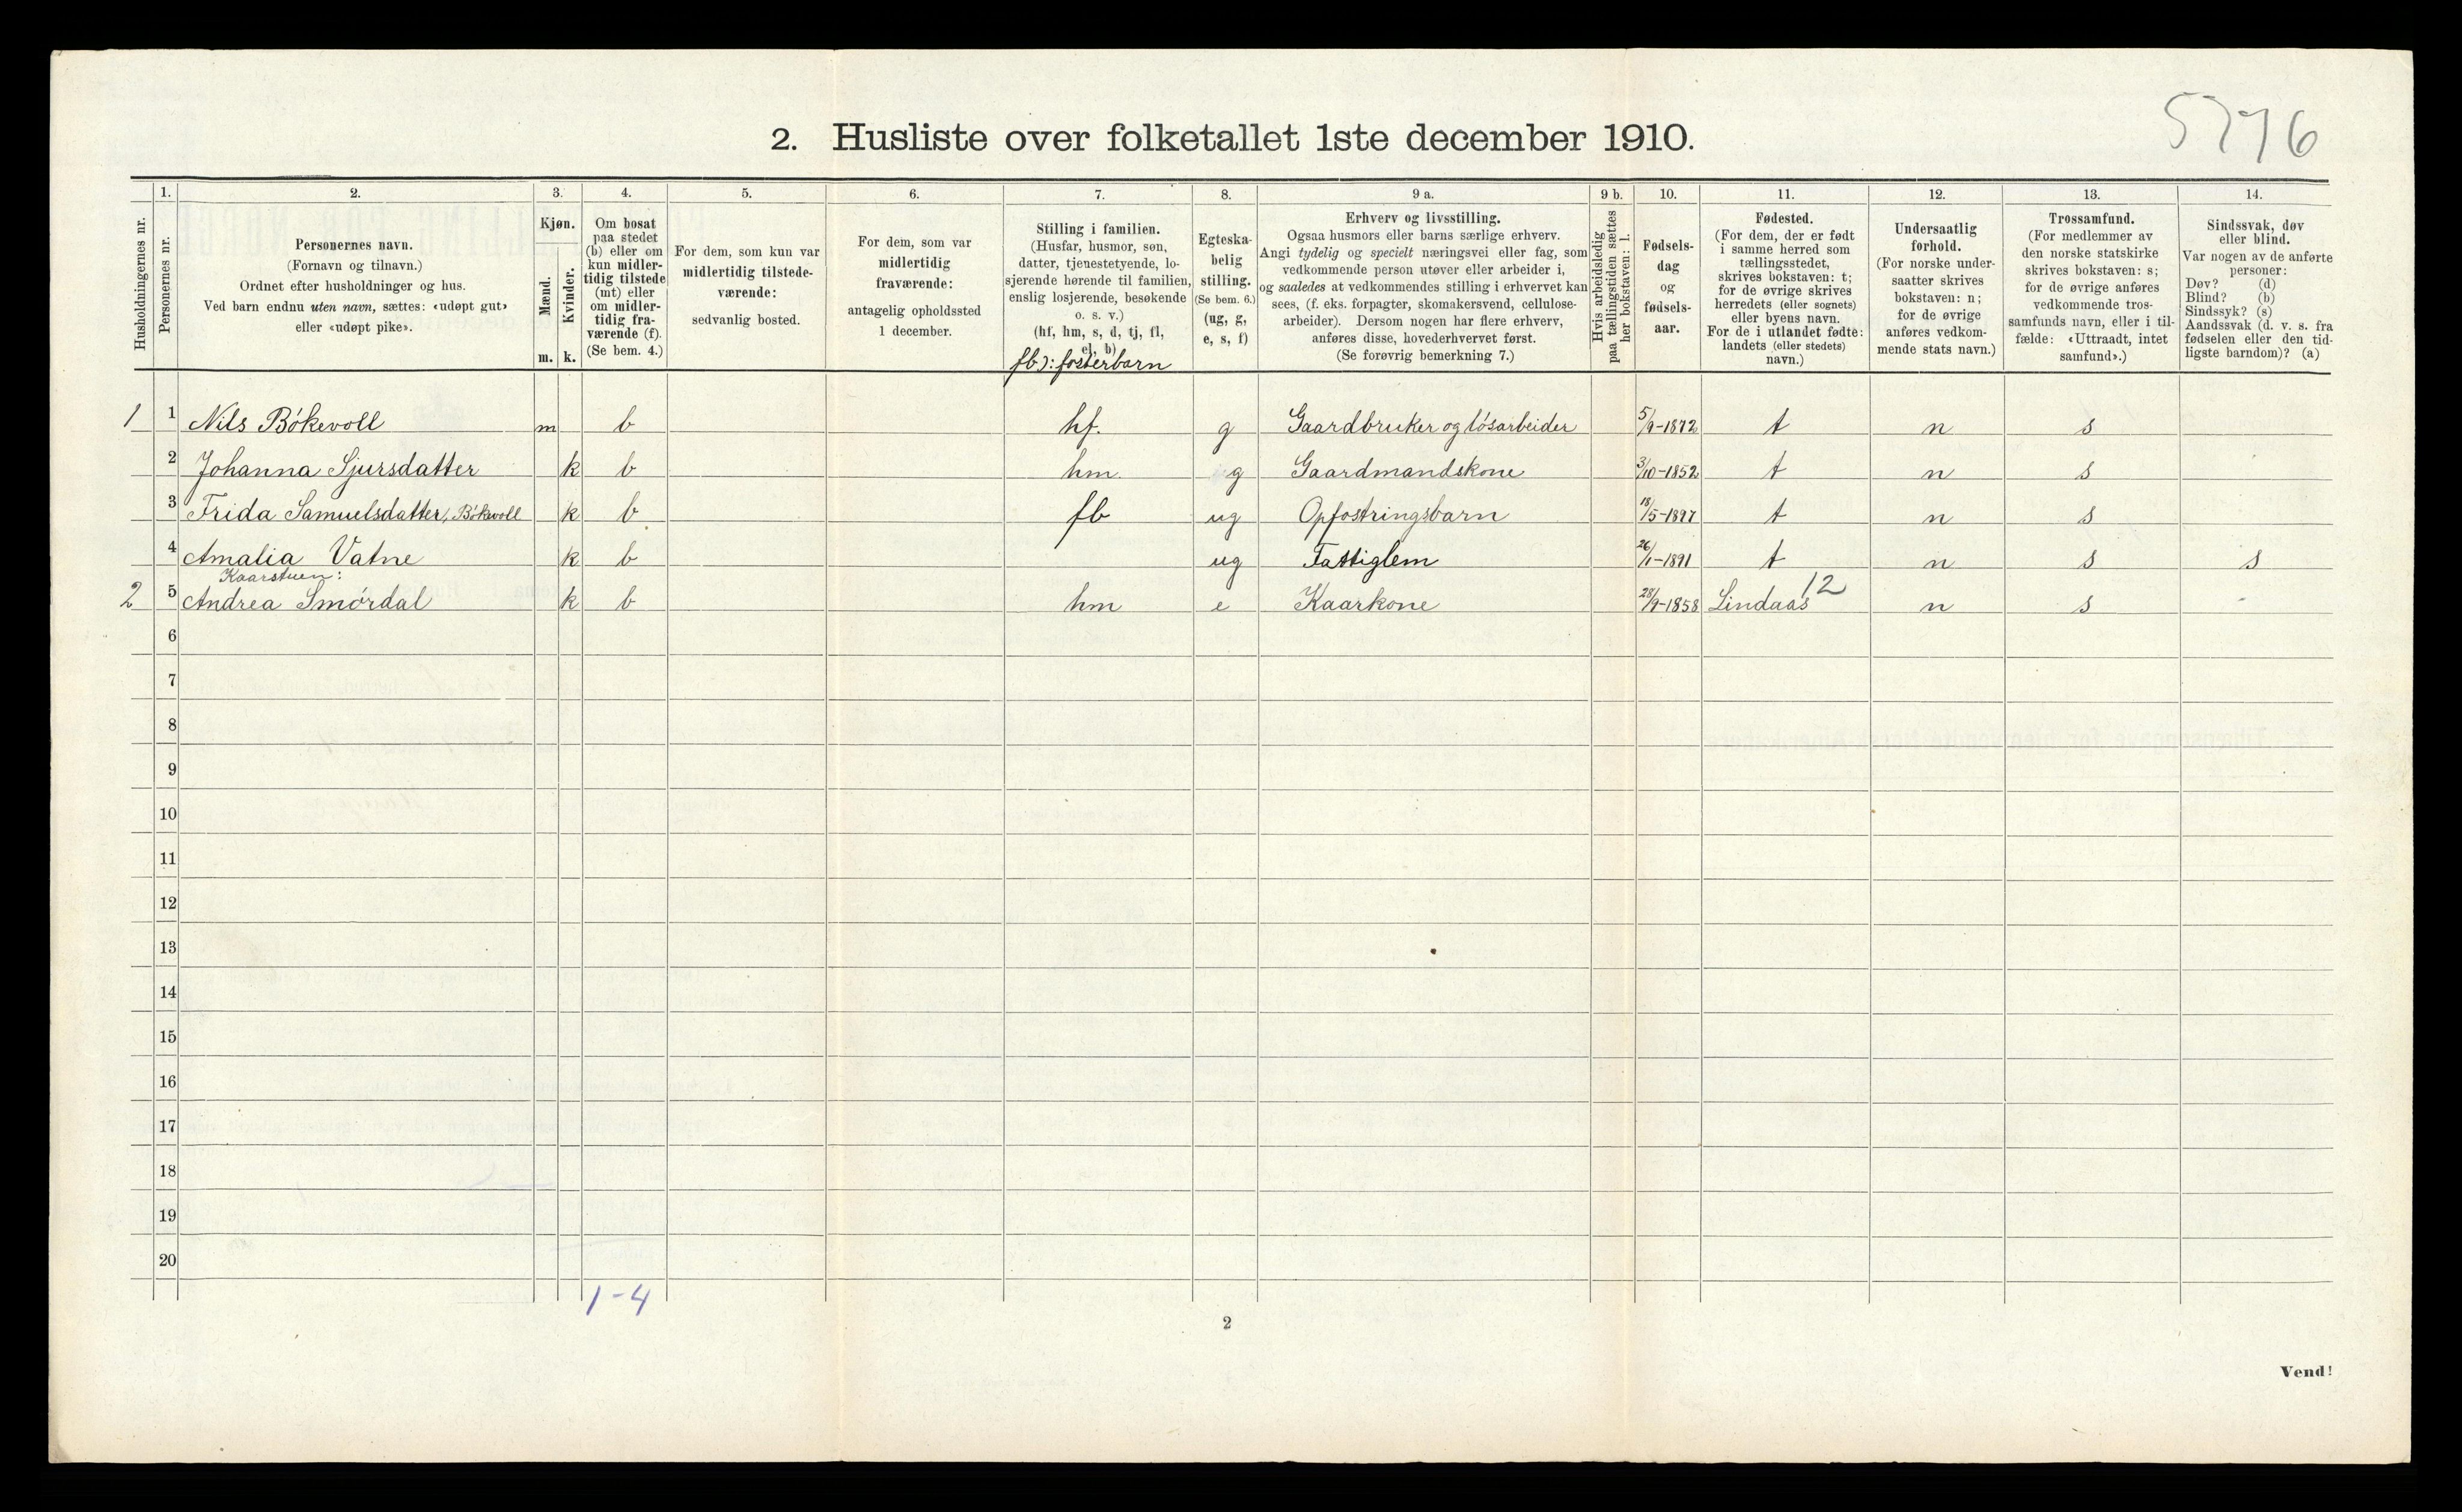 5776
2. Husliste over folketallet 1ste december 1910.
1. 2. 3. 4. 5. 6. 7. 8. 9 a. 9 b. 10. 11. 12. 13. 14.
Husholdningernes nr.
Personernes nr.
Personernes navn.
(Fornavn og tilnavn.)
Ordnet efter husholdninger og hus.
Ved barn endnu uten navn, sættes: «udøpt gut»
eller «udøpt pike».
Kjøn.
Mænd.
Kvinder.
m. k.
Om bosat
paa stedet
(b) eller om
kun midler-
tidig tilstede
(mt) eller
om midler-
tidig fra-
værende (f).
(Se bem. 4.)
For dem, som kun var
midlertidig tilstede-
værende:
sedvanlig bosted.
For dem, som var
midlertidig
fraværende:
antagelig opholdssted
1 december.
Stilling i familien.
(Husfar, husmor, søn,
datter, tjenestetyende, lo-
sjerende hørende til familien,
enslig losjerende, besøkende
o. s. v.)
(hf, hm, s, d, tj, fl,
el, b)
fb): fosterbarn
Egteska-
belig
stilling.
(Se bem. 6.)
(ug, g,
e, s, f)
Erhverv og livsstilling.
Ogsaa husmors eller barns særlige erhverv.
Angi tydelig og specielt næringsvei eller fag, som
vedkommende person utøver eller arbeider i,
og saaledes at vedkommendes stilling i erhvervet kan
sees, (f. eks. forpagter, skomakersvend, cellulose-
arbeider). Dersom nogen har flere erhverv,
anføres disse, hovederhvervet først.
(Se forøvrig bemerkning 7.)
Hvis arbeidsledig
paa tællingstiden sættes
her bokstaven: l.
Fødsels-
dag
og
fødsels-
aar.
Fødested.
(For dem, der er født
i samme herred som
tællingsstedet,
skrives bokstaven: t;
for de øvrige skrives
herredets (eller sognets)
eller byens navn.
For de i utlandet fødte:
landets (eller stedets)
navn.)
Undersaatlig
forhold.
(For norske under-
saatter skrives
bokstaven: n;
for de øvrige
anføres vedkom-
mende stats navn.)
Trossamfund.
(For medlemmer av
den norske statskirke
skrives bokstaven: s;
for de øvrige anføres
vedkommende tros-
samfunds navn, eller i til-
fælde: «Uttraadt, intet
samfund».)
Sindssvak, døv
eller blind.
Var nogen av de anførte
personer:
Døv? (d)
Blind? (b)
Sindssyk? (s)
Aandssvak (d. v. s. fra
fødselen eller den tid-
ligste barndom)? (a)
1 1 Nils Bókevoll m b hf. g Gaardbruker og lósarbeider 5/9-1872 t n s
2 Johanna Sjursdatter k b hm. g Gaardmandskone 3/10-1852 t n s
3 Frida Samuelsdatter, Bókevoll k b fb ug Opfostringsbarn 18/5-1897 t n s
4 Amalia Vatne k b ug Fattiglem 26/1-1891 t n s s
Kaarstuen:
2 5 Andrea Smórdal k b hm e Kaarkone 28/9-1858 Lindaas 12 n s
6
7
8
9
10
11
12
13
14
15
16
17
18
19
20
1-4
2
Vend!